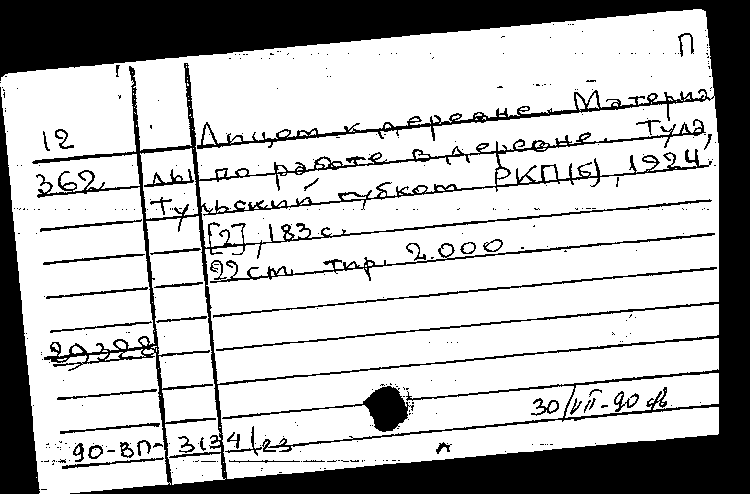 П
12 Лицом к деревне. Материа
362. лы по работе в деревне. Тула,
Тульский губком РКП(б), 1924.
[2], 183 с.
22 см. тир. 2.000.
29388
30/VII-90
90-ВП- 3134/23